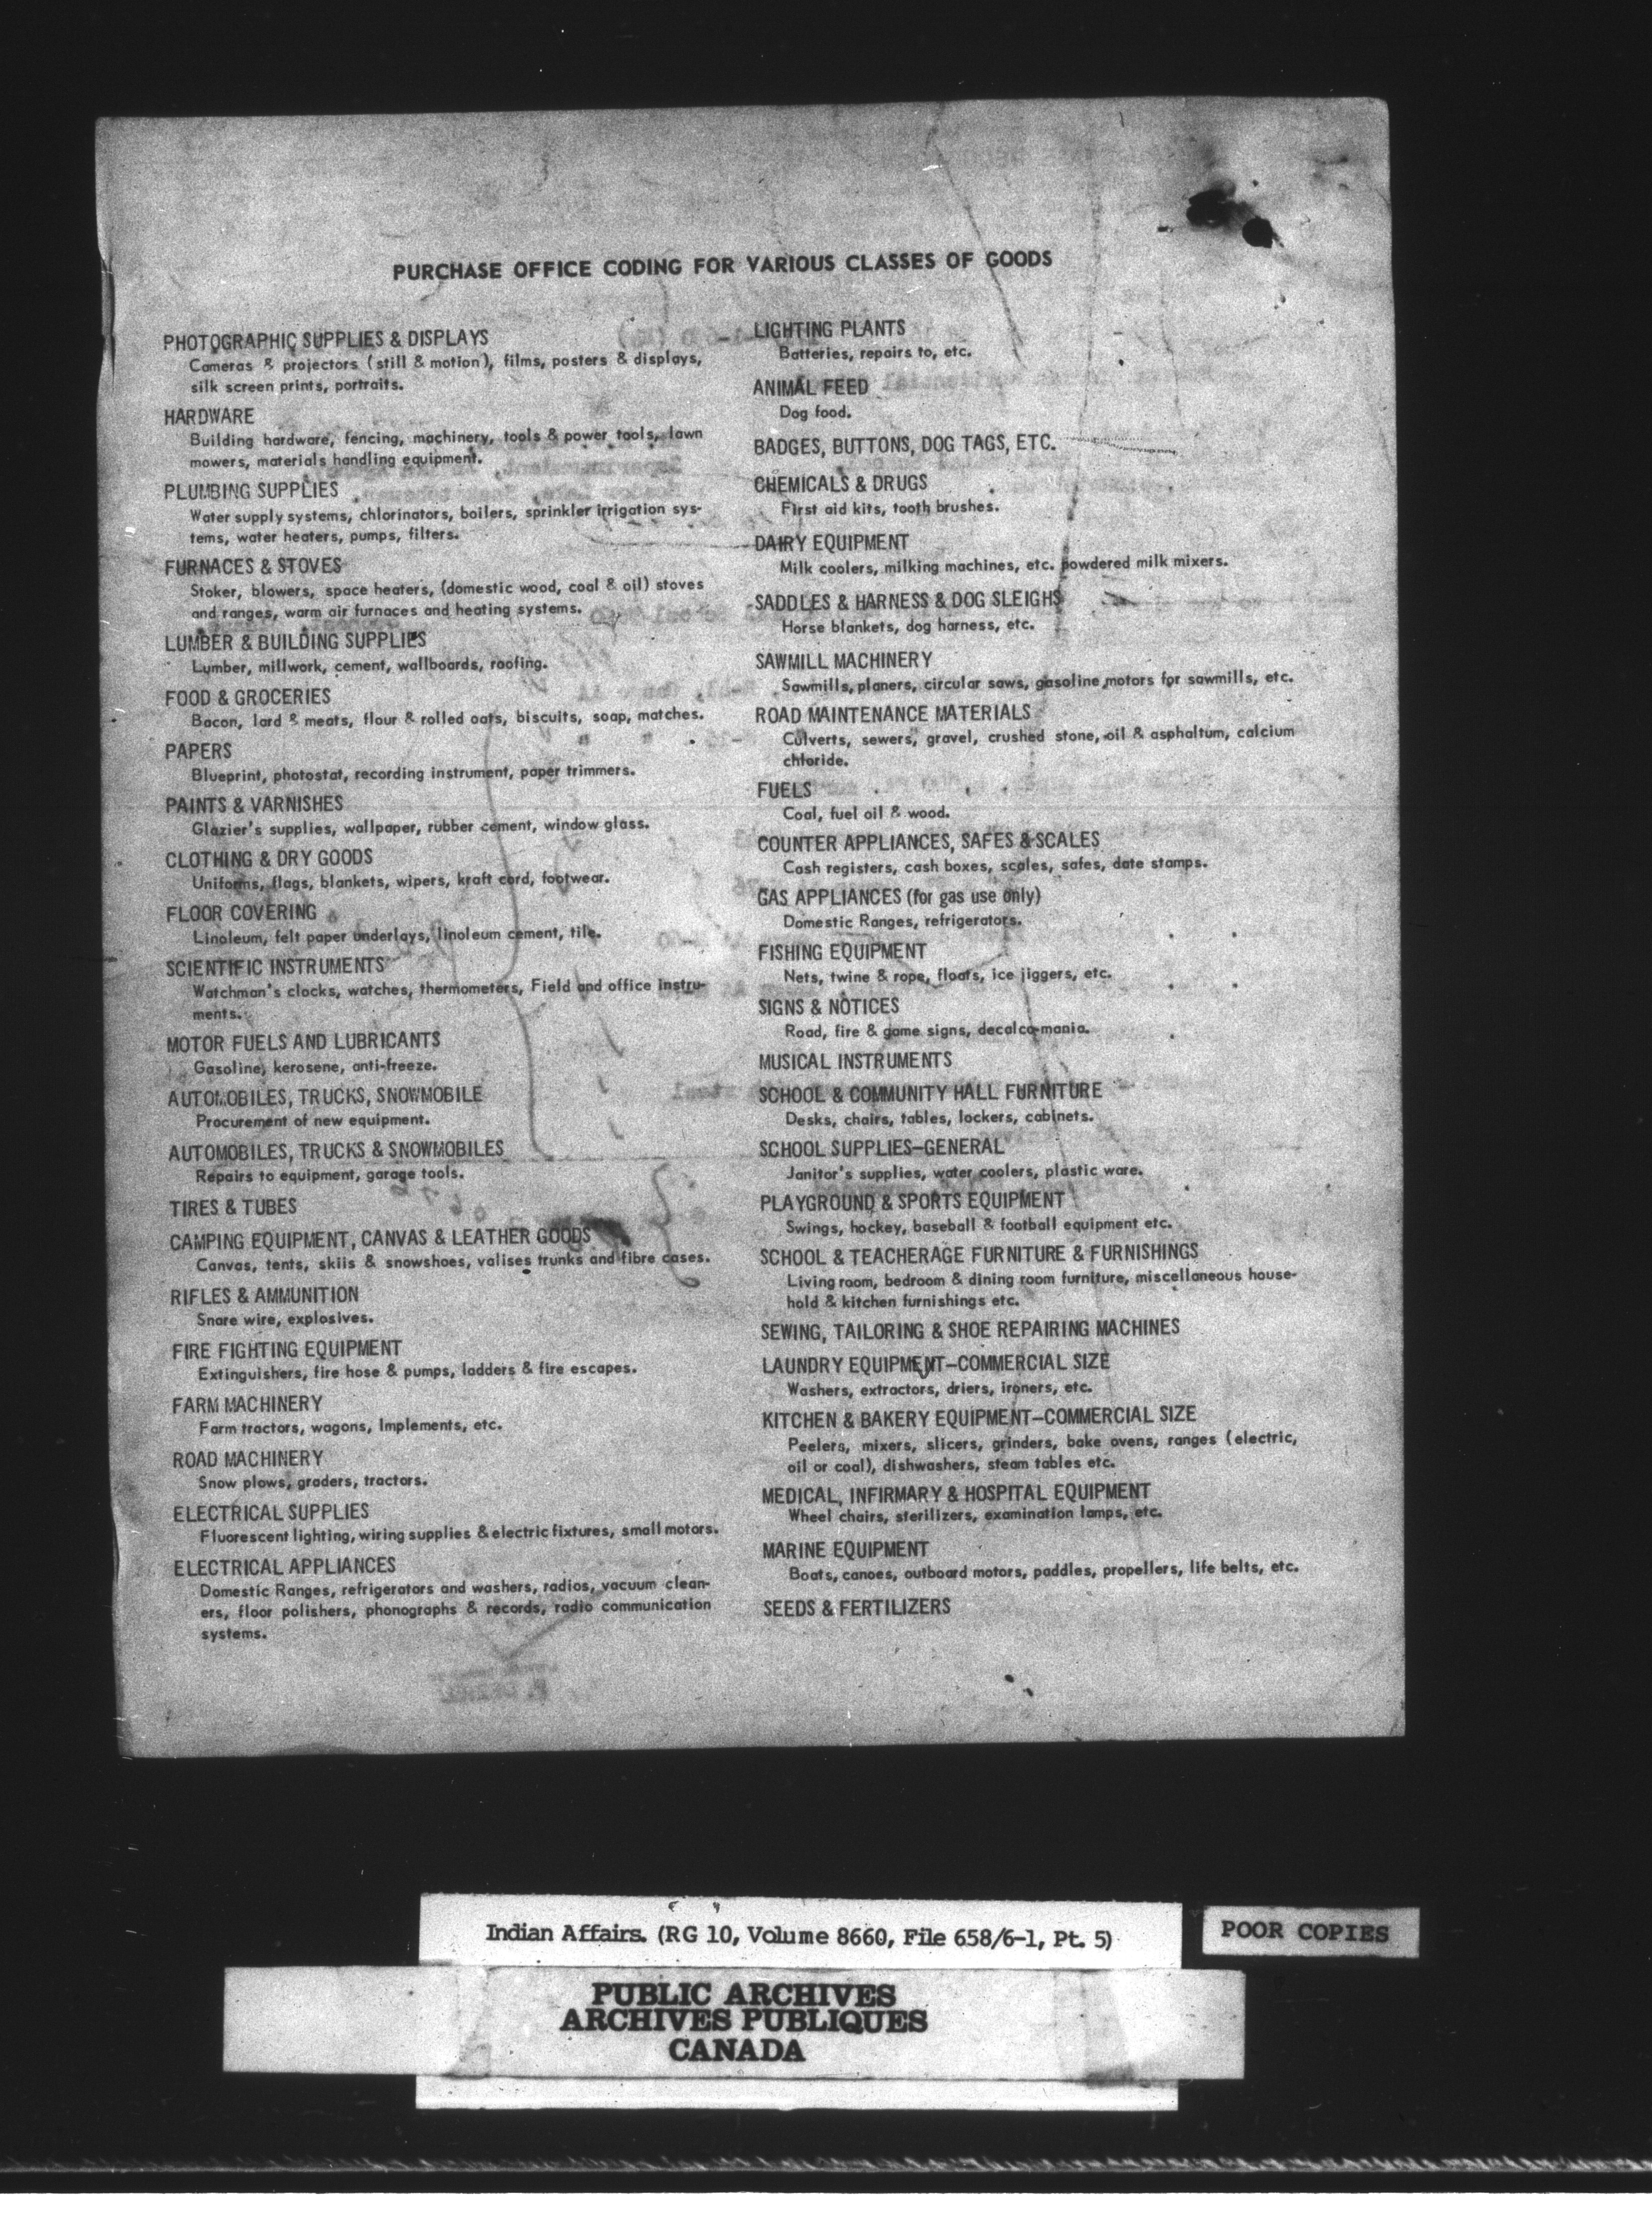 PURCHASE OFFICE CODING FOR VARIOUS CLASSES OF GOODS
PHOTOGRAPHIC SUPPLIES & DISPLAYS
Cameras & projectors (still & motion), films, posters & displays,
silk screen prints, portraits.
HARDWARE
Building hardware, fencing, machinery, tools & power tools, lawn
mowers, materials handling equipment.
PLUMBING SUPPLIES
Water supply systems, chlorinators, boilers, sprinkler irrigation sys-
tems, water heaters, pumps, filters.
FURNACES & STOVES
Stoker, blowers, space heaters, (domestic wood, coal & oil) stoves
and ranges, warm air furnaces and heating systems.
LUMBER & BUILDING SUPPLIES
Lumber, millwork, cement, wallboards, roofing.
FOOD & GROCERIES
Bacon, lard & meats, flour & rolled oats, biscuits, soap, matches.
PAPERS
Blueprint, photostat, recording instrument, paper trimmers.
PAINTS & VARNISHES
Glazier's supplies, wallpaper, rubber cement, window glass.
CLOTHING & DRY GOODS
Uniforms, flags, blankets, wipers, kraft cord, footwear.
FLOOR COVERING
Linoleum, felt paper underlays, linoleum cement, tile.
SCIENTIFIC INSTRUMENTS
Watchman's clocks, watches, thermometers, Field and office instru-
ments.
MOTOR FUELS AND LUBRICANTS
Gasoline, kerosene, anti-freeze.
AUTOMOBILES, TRUCKS, SNOWMOBILE
Procurement of new equipment.
AUTOMOBILES, TRUCKS & SNOWMOBILES
Repairs to equipment, garage tools.
TIRES & TUBES
CAMPING EQUIPMENT, CANVAS & LEATHER GOODS
Canvas, tents, skiis & snowshoes, valises trunks and fibre cases.
RIFLES & AMMUNITION
Snare wire, explosives.
FIRE FIGHTING EQUIPMENT
Extinguishers, fire hose & pumps, ladders & fire escapes.
FARM MACHINERY
Farm tractors, wagons, Implements, etc.
ROAD MACHINERY
Snow plows, graders, tractors.
ELECTRICAL SUPPLIES
Fluorescent lighting, wiring supplies & electric fixtures, small motors.
ELECTRICAL APPLIANCES
Domestic Ranges, refrigerators and washers, radios, vacuum clean-
ers, floor polishers, phonographs & records, radio communication
systems.
LIGHTING PLANTS
Batteries, repairs to, etc.
ANIMAL FEED
Dog food.
BADGES, BUTTONS, DOG TAGS, ETC.
CHEMICALS & DRUGS
First aid kits, tooth brushes.
DAIRY EQUIPMENT
Milk coolers, milking machines, etc. powdered milk mixers.
SADDLES & HARNESS & DOG SLEIGHS
Horse blankets, dog harness, etc.
SAWMILL MACHINERY
Sawmills, planers, circular saws, gasoline motors for sawmills, etc.
ROAD MAINTENANCE MATERIALS
Culverts, sewers, gravel, crushed stone, oil & asphaltum, calcium
chloride.
FUELS
Coal, fuel oil & wood.
COUNTER APPLIANCES, SAFES & SCALES
Cash registers, cash boxes, scales, safes, date stamps.
GAS APPLIANCES (for gas use only)
Domestic Ranges, refrigerators.
FISHING EQUIPMENT
Nets, twine & rope, floats, ice jiggers, etc.
SIGNS & NOTICES
Road, fire & game signs, decalco-mania.
MUSICAL INSTRUMENTS
SCHOOL & COMMUNITY HALL FURNITURE
Desks, chairs, tables, lockers, cabinets.
SCHOOL SUPPLIES–GENERAL
Janitor's supplies, water coolers, plastic ware.
PLAYGROUND & SPORTS EQUIPMENT
Swings, hockey, baseball & football equipment etc.
SCHOOL & TEACHERAGE FURNITURE & FURNISHINGS
Living room, bedroom & dining room furniture, miscellaneous house-
hold & kitchen furnishings etc.
SEWING, TAILORING & SHOE REPAIRING MACHINES
LAUNDRY EQUIPMENT–COMMERCIAL SIZE
Washers, extractors, driers, ironers, etc.
KITCHEN & BAKERY EQUIPMENT–COMMERCIAL SIZE
Peelers, mixers, slicers, grinders, bake ovens, ranges (electric,
oil or coal), dishwashers, steam tables etc.
MEDICAL, INFIRMARY & HOSPITAL EQUIPMENT
Wheel chairs, sterilizers, examination lamps, etc.
MARINE EQUIPMENT
Boats, canoes, outboard motors, paddles, propellers, life belts, etc.
SEEDS & FERTILIZERS
Indian Affairs. (RG 10, Volume 8660, File 658/6-1, Pt. 5)
POOR COPIES
PUBLIC ARCHIVES
ARCHIVES PUBLIQUES
CANADA